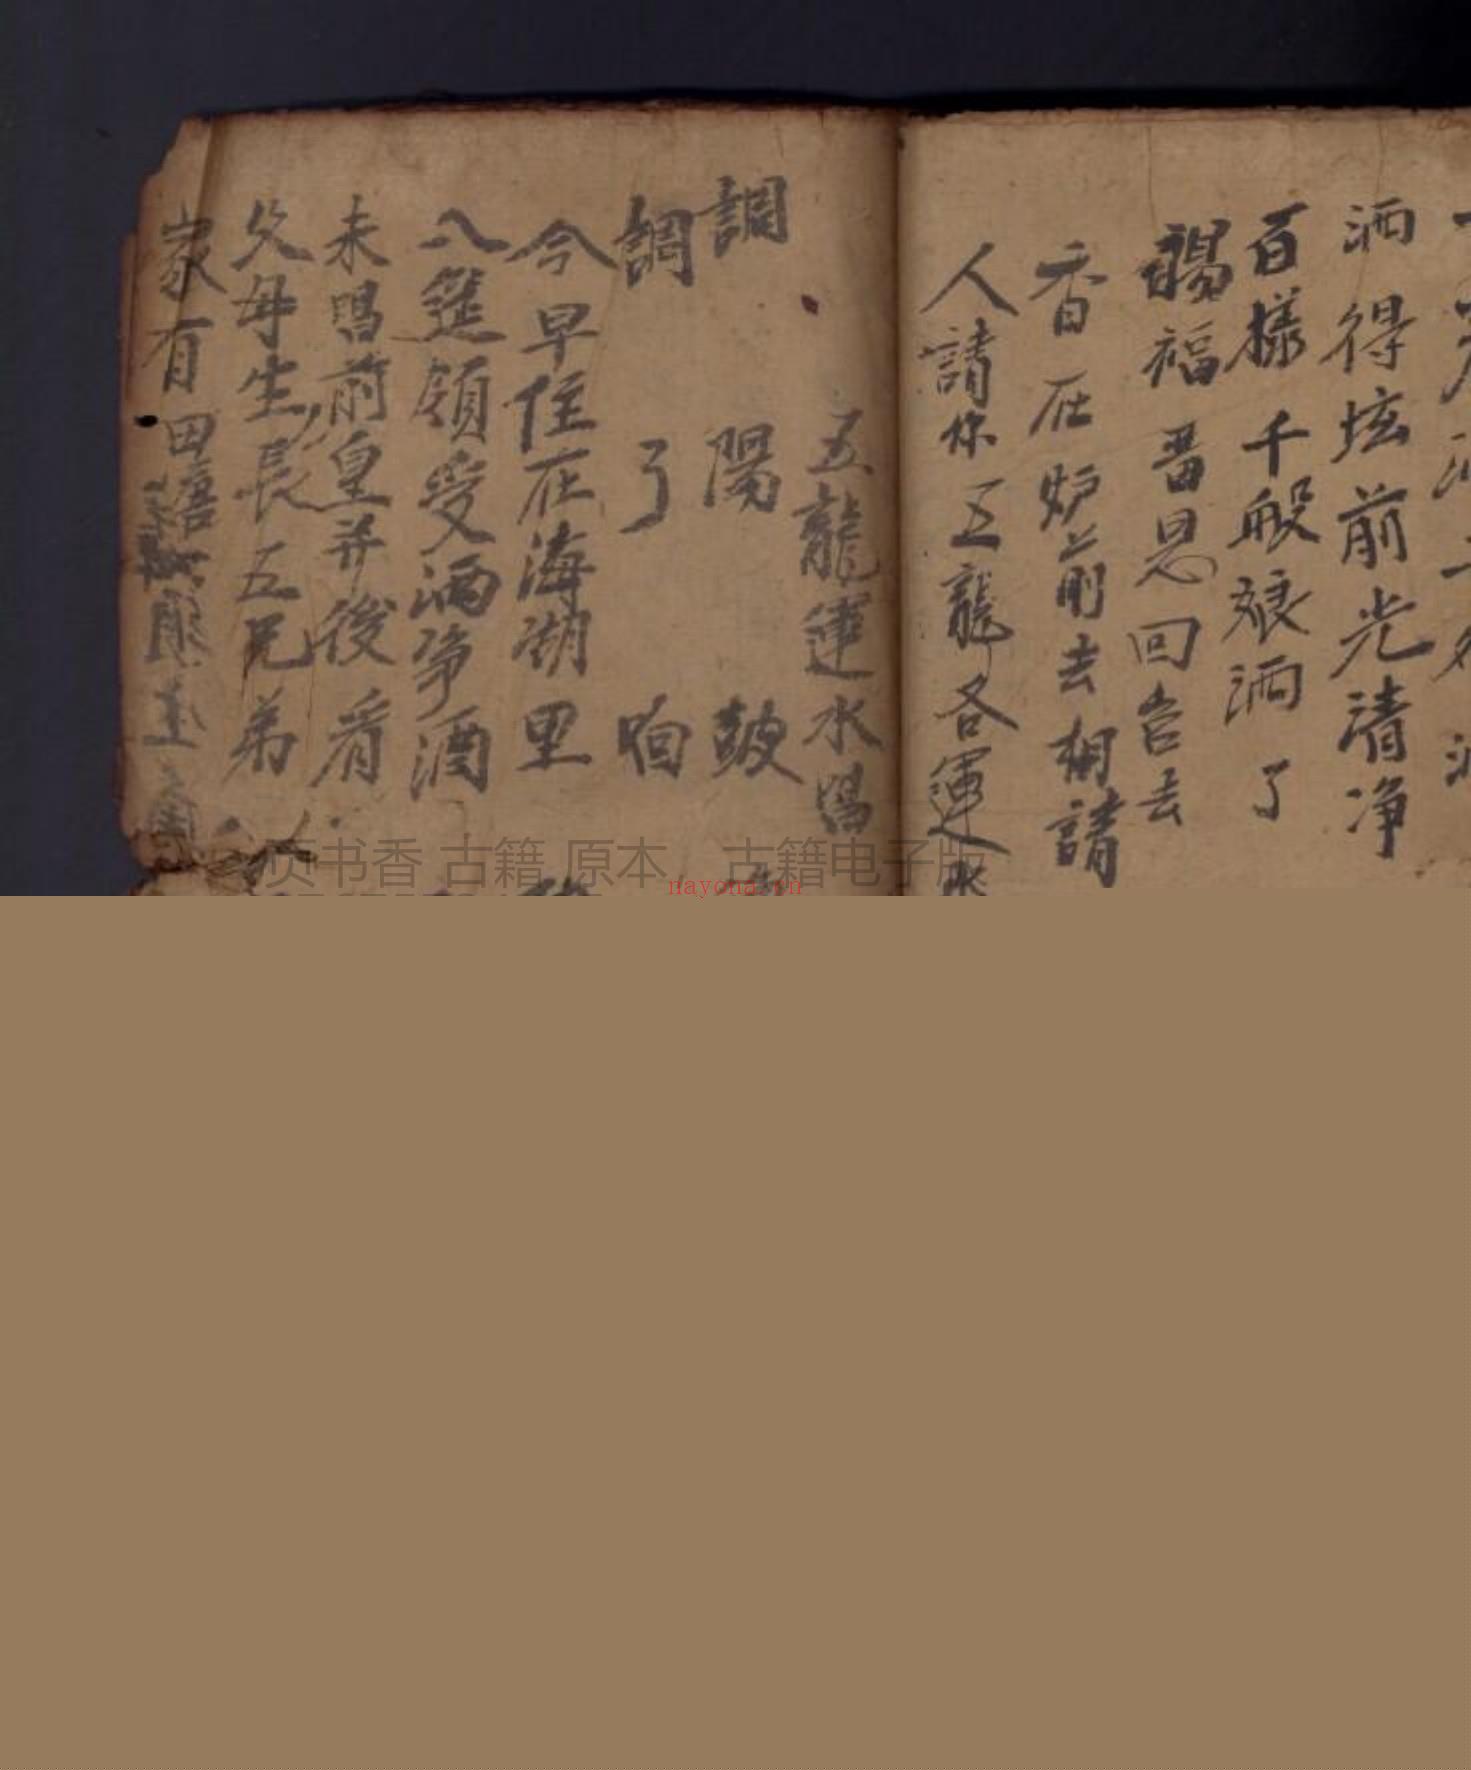 洒得坛前光清净
百樣千般娘洒了
賜福畨恩回宫去
香在炉上前去相請
人請你五龍各運水
五龍運水唱
調陽皷
調了咱
今早住在海湖里
八筵領受洒争酒
未唱前皇并後看
父母生長五兄弟
家有田
页书香 古籍 原本 古籍电子版
nayona.cn